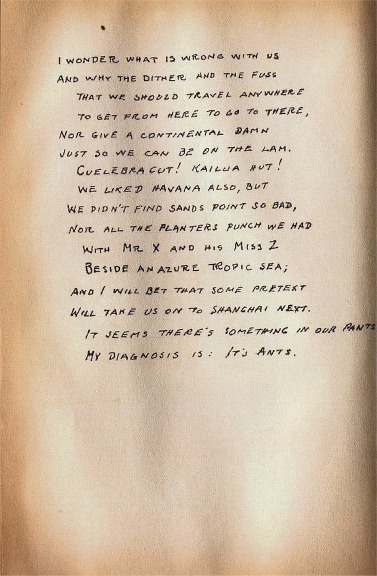 I WONDER WHAT IS WRONG WITH US
AND WHY THE DITHER AND THE FUSS
THAT WE SHOULD TRAVEL ANYWHERE
TO GET FROM HERE TO GO TO THERE,
NOR GIVE A CONTINENTAL DAMN
JUST SO WE CAN BE ON THE LAM.
CUELEBRA CUT! KAILUA HUT!
WE LIKED HAVANA ALSO, BUT
WE DIDN'T FIND SANDS POINT SO BAD,
NOR ALL THE PLANTERS PUNCH WE HAD
WITH MR X AND HIS MISS Z
BESIDE AN AZURE TROPIC SEA;
AND I WILL BET THAT SOME PRETEXT
WILL TAKE US ON TO SHANGHAI NEXT.
IT SEEMS THERE'S SOMETHING IN OUR PANTS
MY DIAGNOSIS IS: IT'S ANTS.